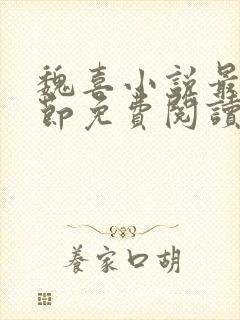 魏喜小说最
節免費閱讀
養家口胡